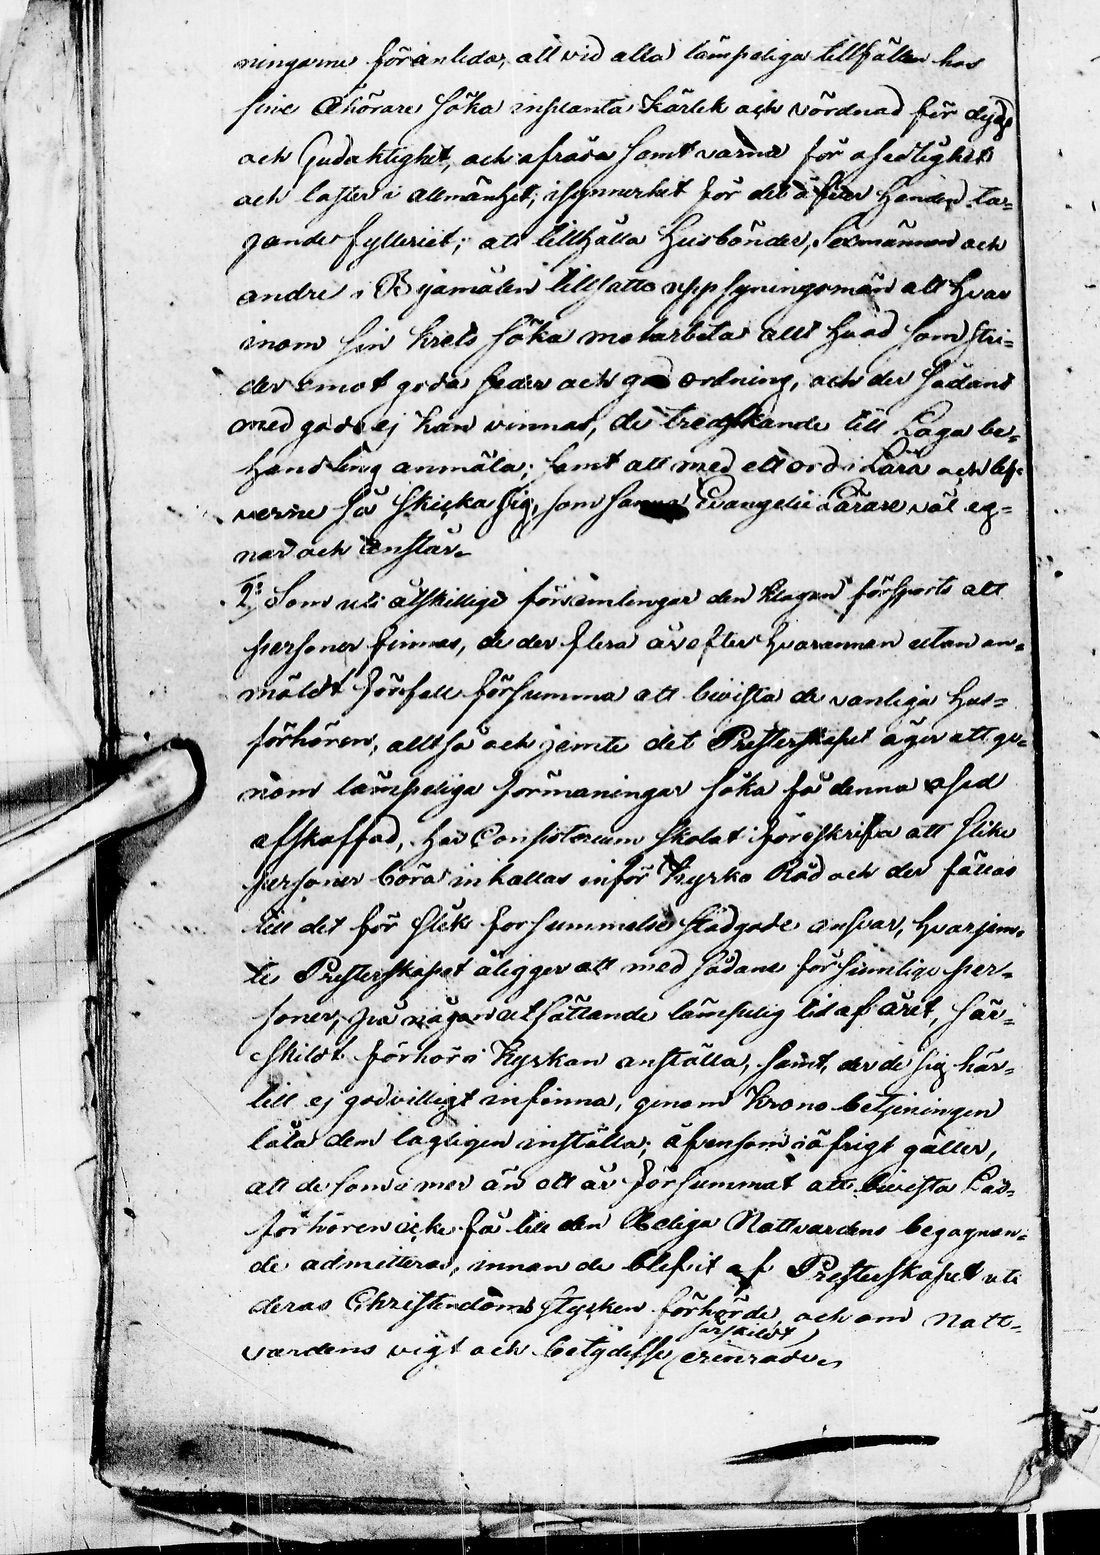 ningarne föranleda, att vid alla lämpeliga tillfällen hos
sine Åhörare söka inplanta kärlek och vördnad för dygd
och Gudaktighet, och afråda samt varna för osedlighet
och laster i allmänhet, i synnerhet för det öfver handen ta-
gande fylleriet; att tillhålla Husbönder, Sexmännen och
andre i Byamålen tillsatte uppsyningsmän att hvar
inom sin krets söka motarbeta allt hvad som stri-
der emot goda seder och god ordning, och der sådant
med godo ej kan vinnas, de tredskande till Laga be-
handling anmäla; samt att med ett ord i Lära och lef-
verne så skicka sig, som sanna Evangelii Lärare väl eg-
nar och anstår.
2: Som uti åtskillige församlingar den klagan försports att
personer finnas, de der flera år efter hvarannan utan an-
mäldt förfall försumma att bivista de vanliga Hus-
förhören, alltså och jemte det Presterskapet äger att ge-
nom lämpeliga förmaningar söka få denna osed
afskaffad, har Consistorium skolat föreskrifva att slike
personer böra inkallas inför Kyrko Råd och der fällas
till det för slik försummelse stadgade ansvar, hvarjem-
te Presterskapet åligger att med sådane försumlige per-
soner, på någon utsättande lämpelig tid af året, sär-
skildt förhör i Kyrkan anställa, samt, der de sig här-
till ej godvilligt infinna, genom Krono betjeningen
låta dem lagligen inställa; äfvensom i öfrigt gäller,
att de som i mer än ett år försummat att bivista Läs-
förhören icke få till den Heliga Nattvardens begagnan-
de admitteras, innan de blifvit af Presterskapet uti
deras Christendoms stycken förhörde, och om Natt-
vardens vigt och betydelse särskildt erinrade.